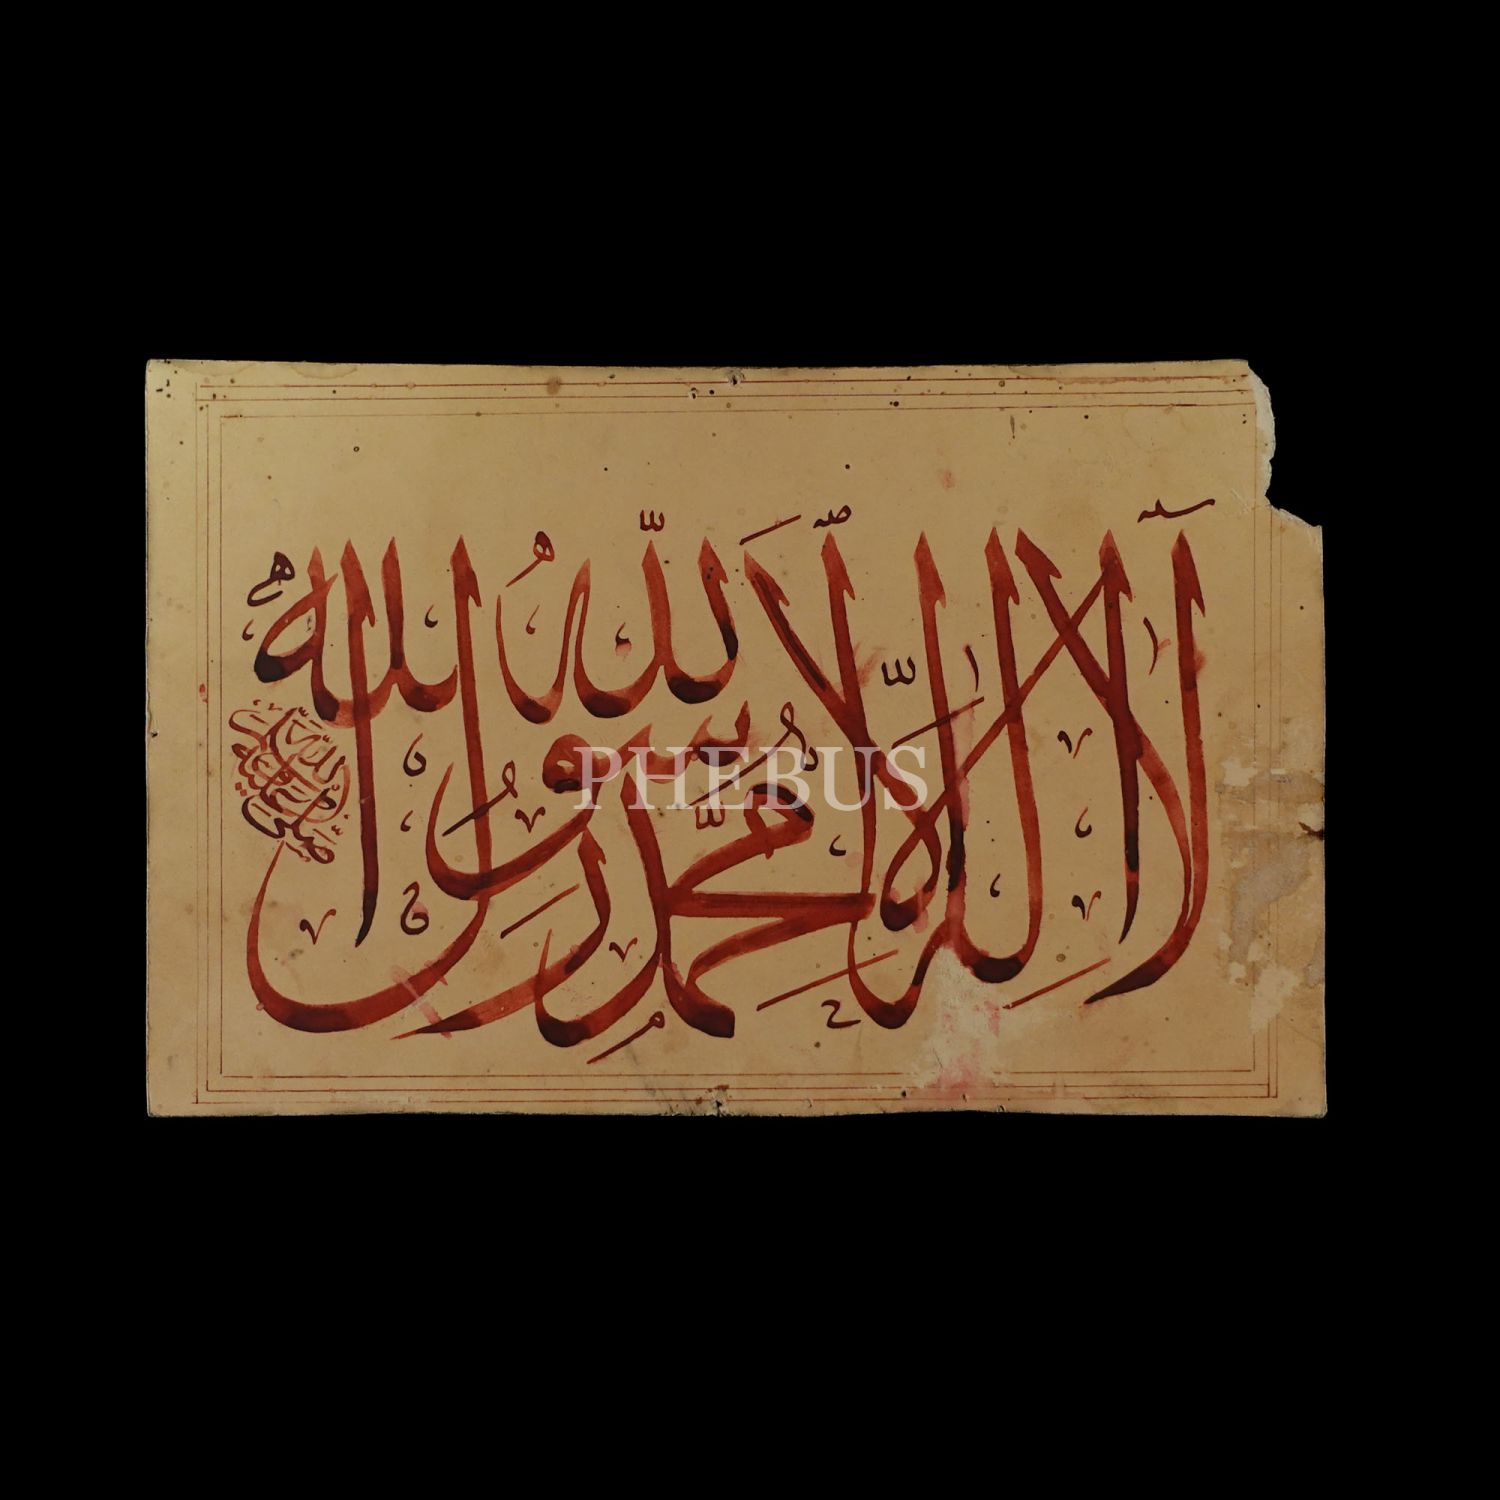 لا إله إلا الله محمد رسول الله
صلى الله تعالى عليه وسلم
PHEBUS